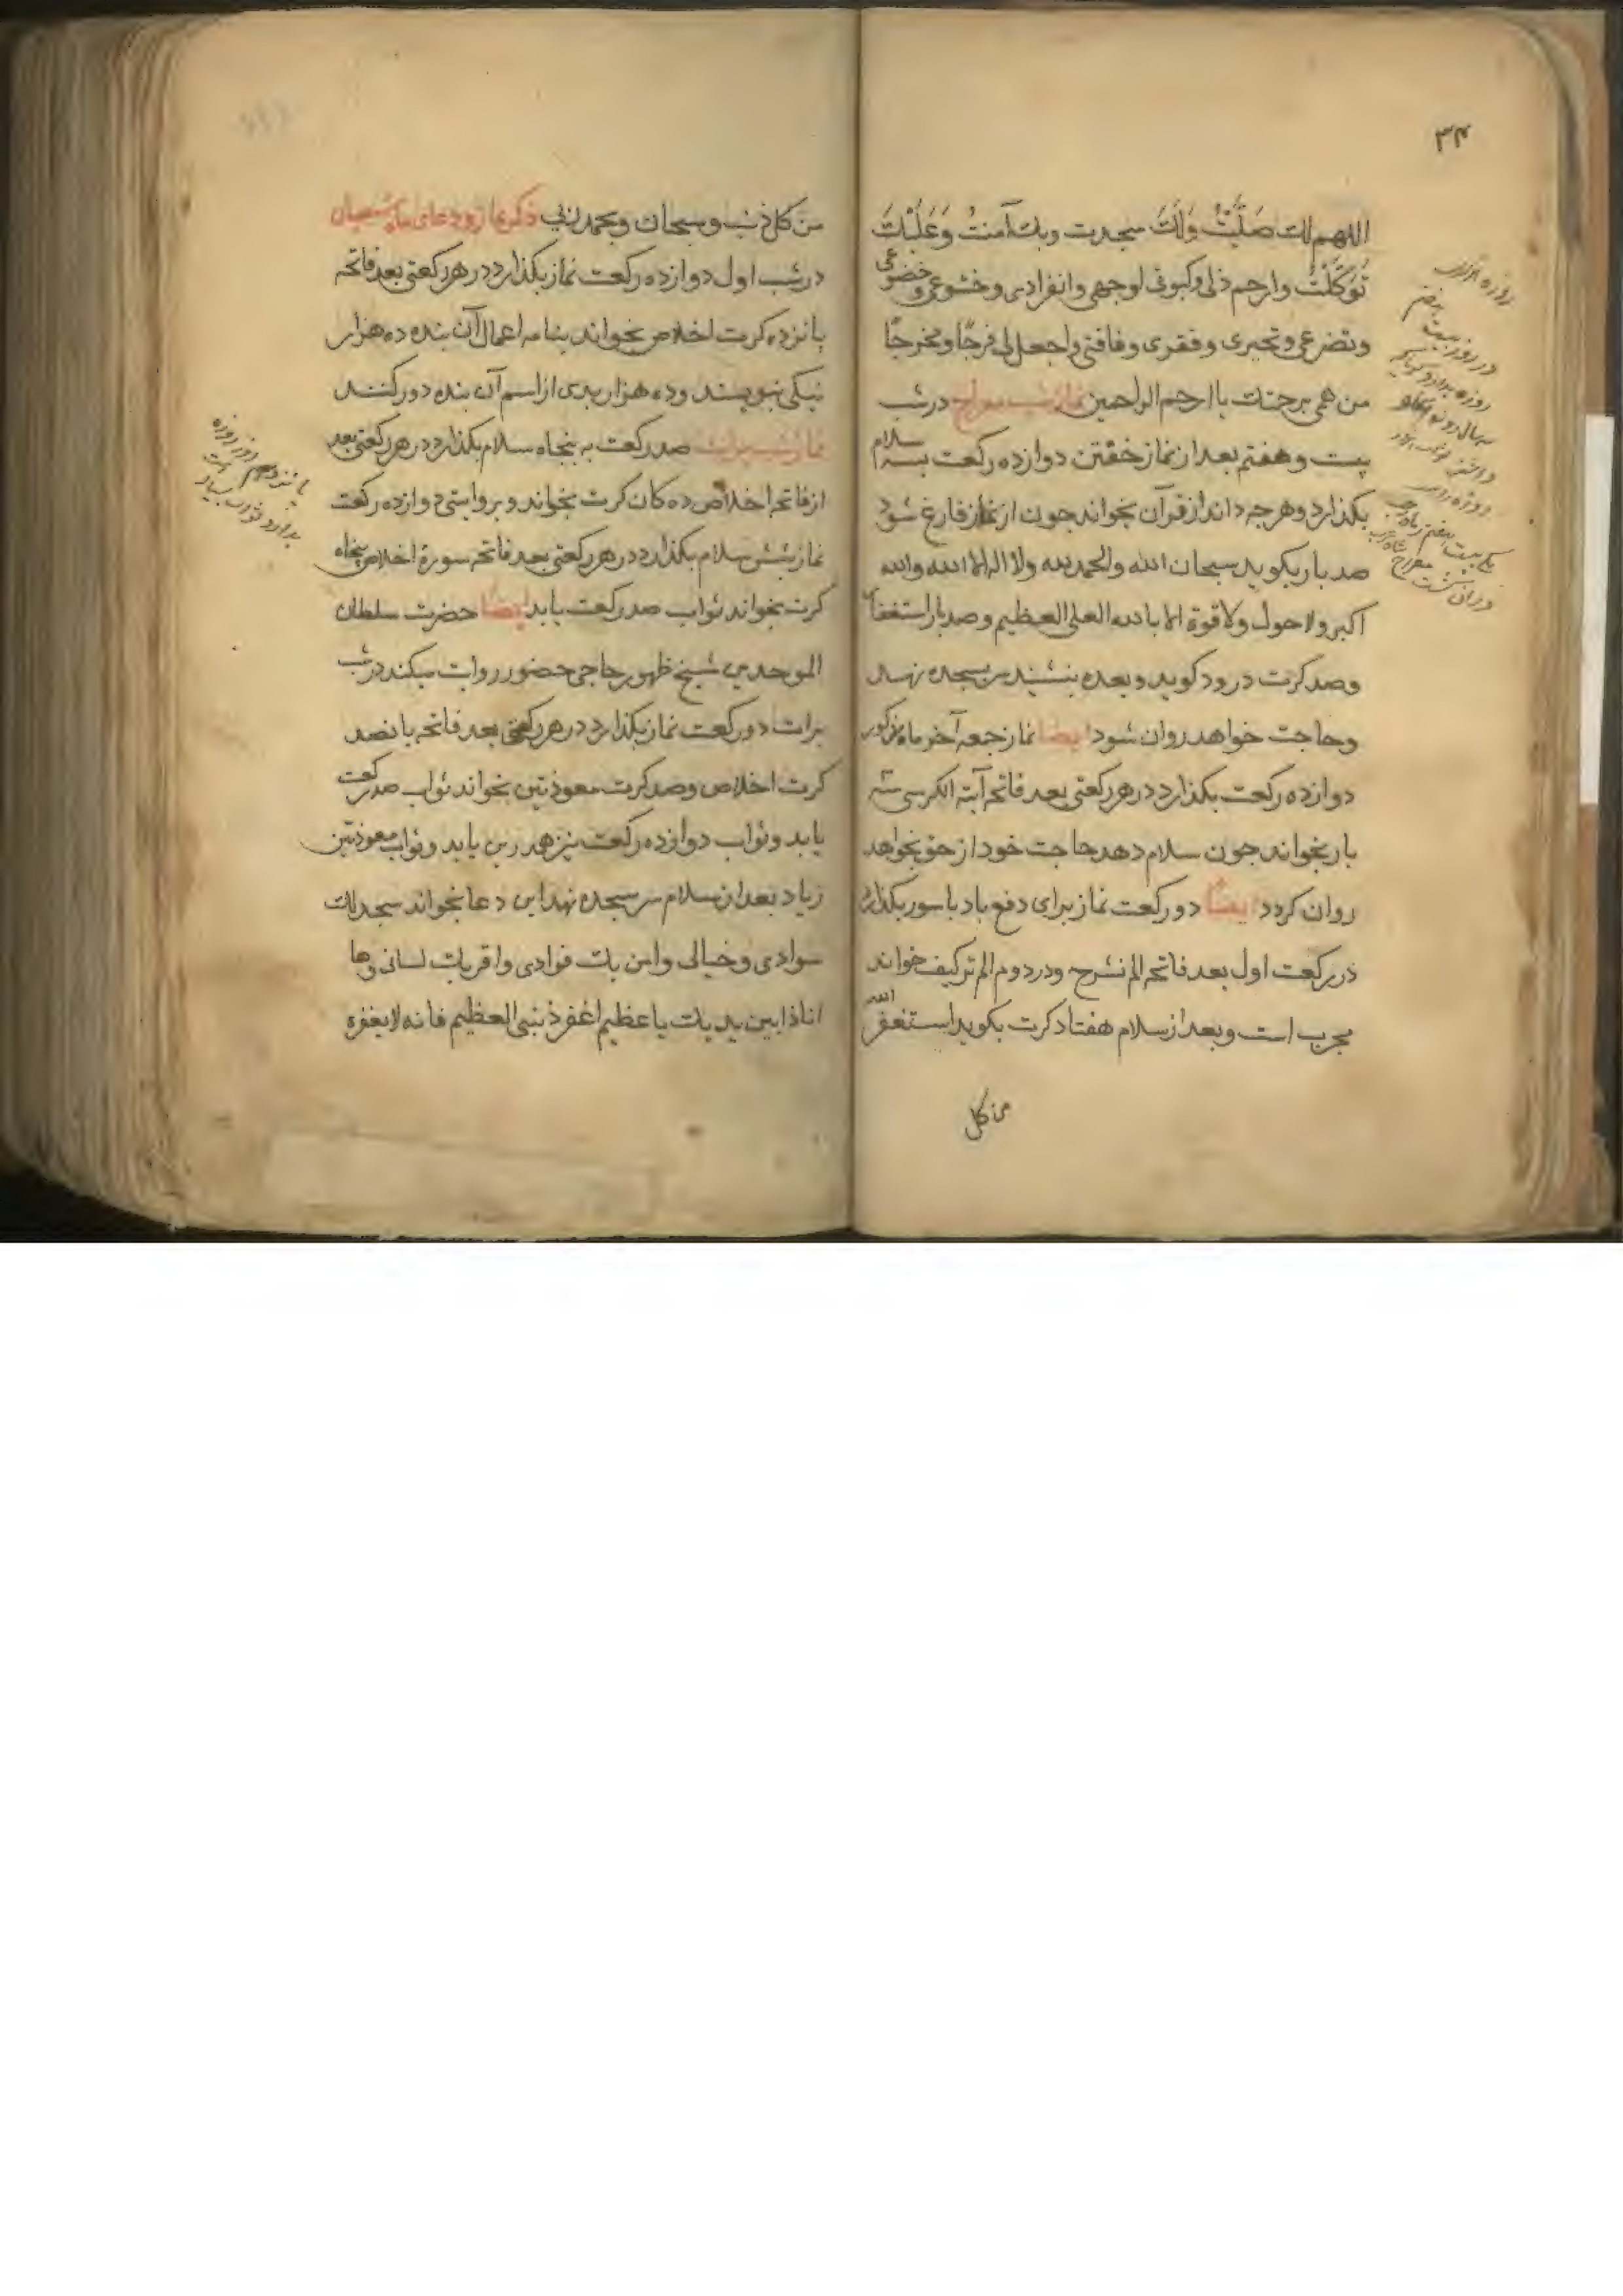 ۳۴
اللهم لك صَلَّيْتُ وَلَكَ سجدت وبك آمنتُ وَعَلَيْكَ
تَوَكَّلْتُ وارحم ذلی وکبوتی لوجهی وانفرادی وخشوعی وخضوعی
وتضرعی وتحیری وفقری وفاقتی واجعل لی فرجًا ومخرجًا
من همی برحمتك یا ارحم الراحمین نماز شب معراج درشب
بیست وهفتم بعد از نماز خفتن دوازده رکعت بسه سلام
بکذارد وهرچه داند از قرآن بخواند جون از نماز فارغ شود
صد بار بکوید سبحان الله والحمد لله ولا اله الا الله والله
اکبر ولا حول ولا قوة الا بالله العلی العظیم وصد بار استغفار
وصد کرت درود کوید وبعده بنشیند سر بسجده نهد
وحاجت خواهد روان شود ایضا نماز جمعه آخر ماه مذکور
دوازده رکعت بکذارد در هر رکعتی بعد فاتحه آیة الکرسی سه
بار بخواند جون سلام دهد حاجت خود از حق بخواهد
روان کردد ایضًا دو رکعت نماز برای دفع باد باسور بکذارد
در رکعت اول بعد فاتحه الم نشرح ودر دوم الم ترکیف خواند
مجرب است وبعد از سلام هفتاد کرت بکوید استغفر الله
من کل
روزه
در روز بیست هفتم
روزه بدارد کویا که
من کل ذنب وسبحان وبحمد ربی ذکر نماز ودعای ماه شعبان
درشب اول دوازده رکعت نماز بکذارد در هر رکعتی بعد فاتحه
پانزده کرت اخلاص بخواند بنامه اعمال آن بنده ده هزار
نیکی بنویسند وده هزار بدی از اسم آن بنده دور کنند
نماز شب برات صد رکعت به پنجاه سلام بکذارد در هر رکعتی بعد
از فاتحه اخلاص ده کان کرت بخواند وبروایتی دوازده رکعت
نماز بشش سلام بکذارد در هر رکعتی بعد فاتحه سورۀ اخلاص پنجاه
کرت بخواند ثواب صد رکعت یابد ایضًا حضرت سلطان
الموحدین شیخ ظهور حاجی حضور روایت میکند درشب
برات دو رکعت نماز بکذارد در هر رکعتی بعد فاتحه پانصد
کرت اخلاص وصد کرت معوذتین بخواند ثواب صد رکعت
یابد وثواب دوازده رکعت نیز هم درین یابد وثواب معوذتین
زیاد بعد از سلام سر بسجده نهد این دعا بخواند سجد لك
سوادی وخیالی وامن بك فوادی واقر بك لسانی وها
انا ذا بین یدیك یا عظیم اغفر ذنبی العظیم فانه لا یغفره
پانزدهم روز روزه
بدارد ثواب بسیار است